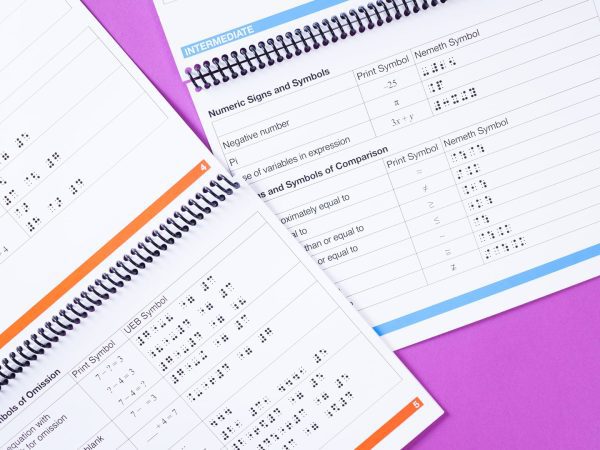 INTERMEDIATE
Numeric Signs and Symbols
Print Symbol
Nemeth Symbol
Negative number
−25
Pi
π
se of variables in expression
3x + y
ns and Symbols of Comparison
Print Symbol
Nemeth Symbol
oximately equal to
≈
al to
≠
than or equal to
≥
or equal to
≤
~
≅
4
5
mbols of Omission
Print Symbol
UEB Symbol
equation with
k for omission
7 − ? = 3
? − 4 = 3
7 − 4 = ?
blank
7 − __ = 3
__ + 4 = 7